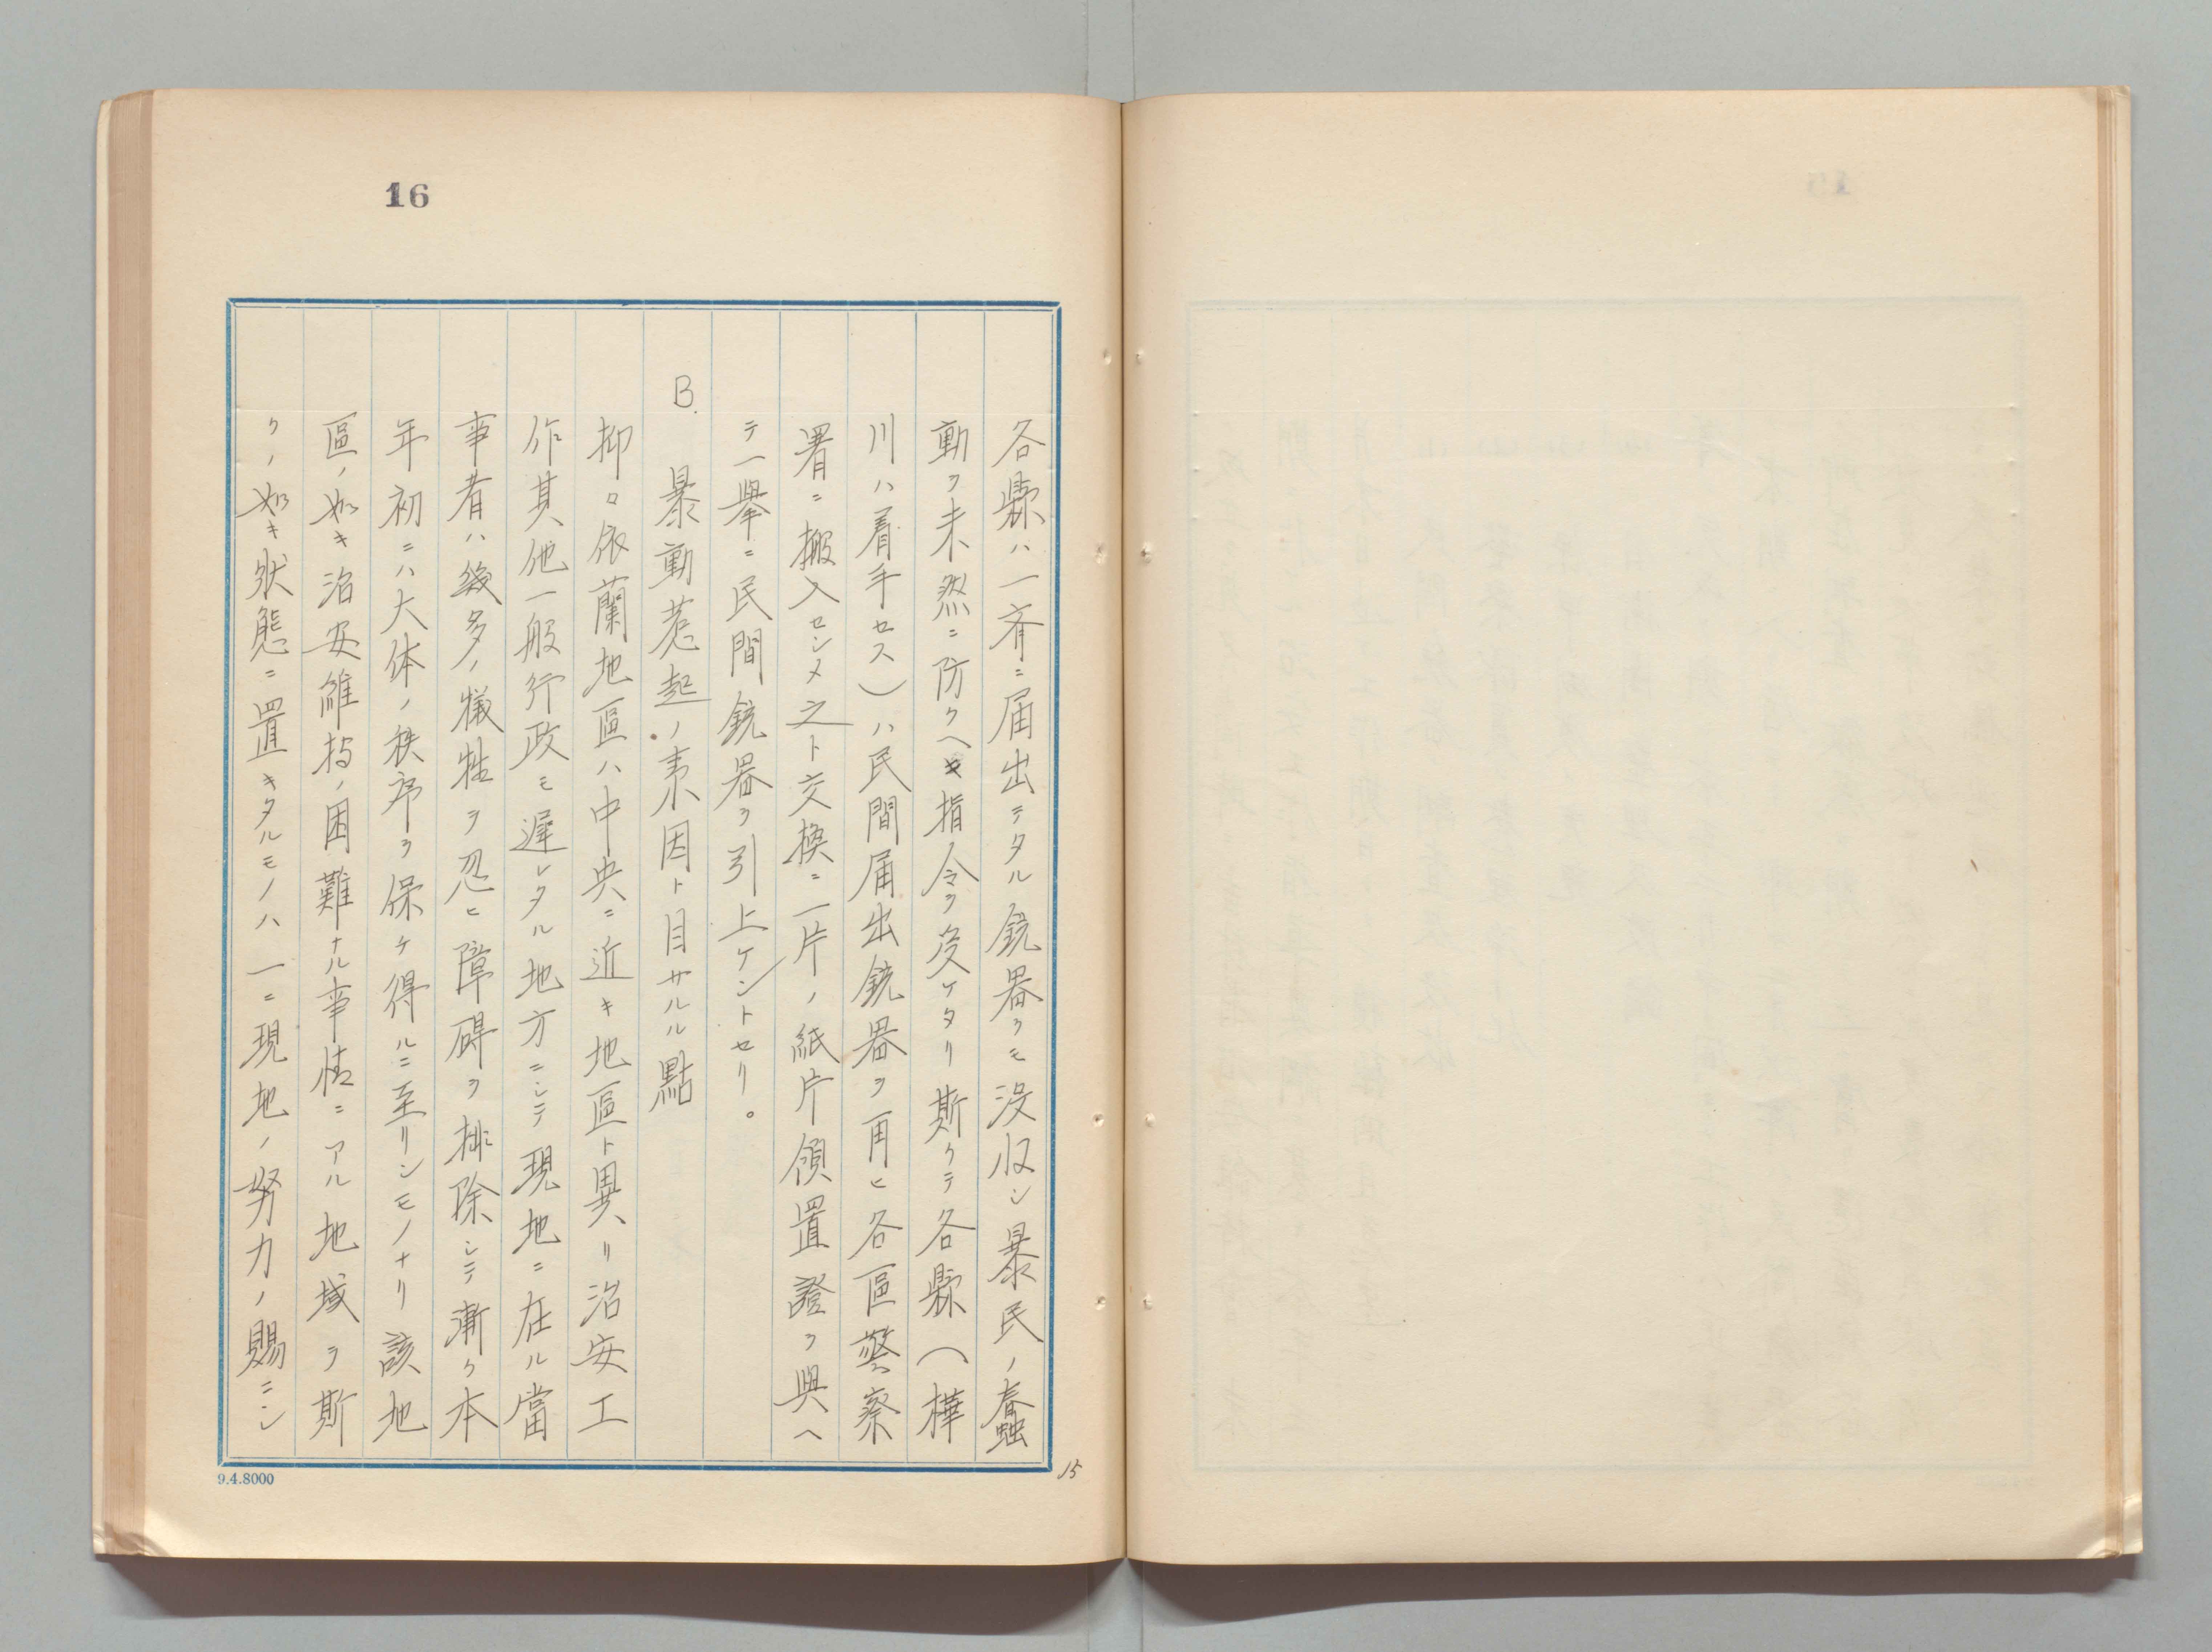 16
各縣ハ一齊ニ届出テタル銃器ヲモ没収シ暴民ノ蠢
動ヲ未然ニ防クヘキ指令ヲ受ケタリ斯クテ各縣(樺
川ハ着手セス)ハ民間届出銃器ヲ再ヒ各區警察
署ニ搬入セシメ之ト交換ニ一片ノ紙片領置證ヲ與ヘ
テ一擧ニ民間銃器ヲ引上ケントセリ。
B. 暴動惹起ノ素因ト目サルル點
抑ロ依蘭地區ハ中央ニ近キ地區ト異リ治安工
作其他一般行政モ遲レタル地方ニシテ現地ニ在ル當
事者ハ幾多ノ犠牲ヲ忍ヒ障碍ヲ排除シテ漸ク本
年初ニハ大体ノ秩序ヲ保ケ得ルニ至リシモノナリ該地
區ノ如キ治安維持ノ困難ナル事情ニアル地域ヲ斯
クノ如キ狀態ニ置キタルモノハ一ニ現地ノ努力ノ賜ニシ
15
9.4.8000